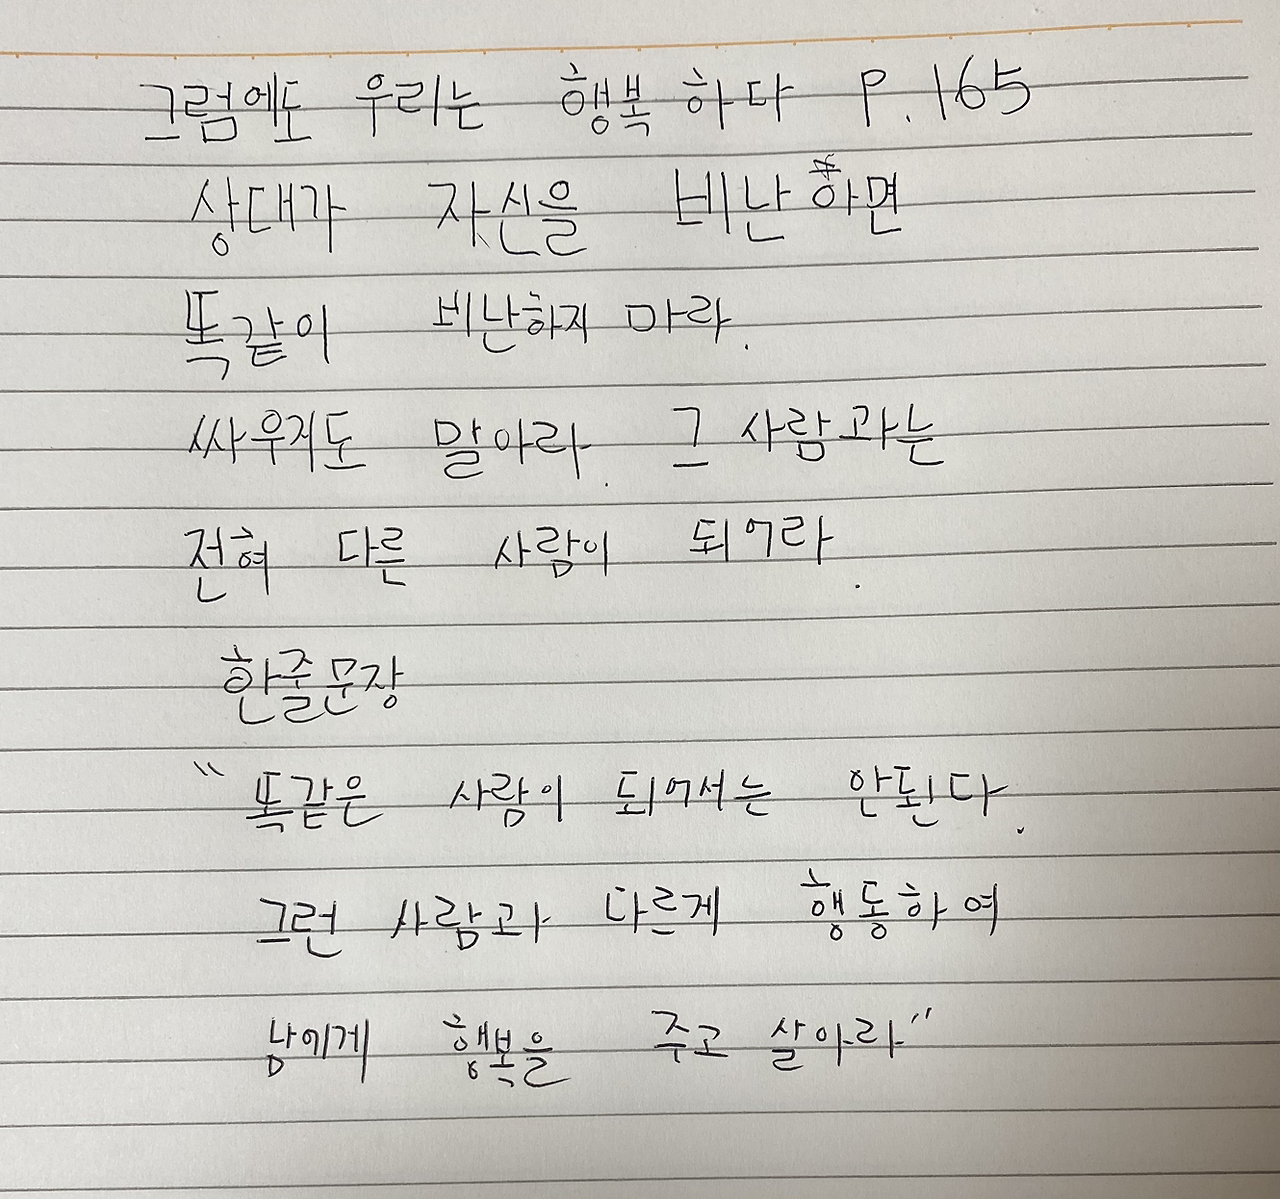 그럼에도 우리는 행복하다 P.165
상대가 자신을 비난하면
똑같이 비난하지 마라.
싸우지도 말아라. 그 사람과는
전혀 다른 사람이 되어라.
한줄문장
"똑같은 사람이 되어서는 안된다.
그런 사람과 다르게 행동하여
남에게 행복을 주고 살아라"